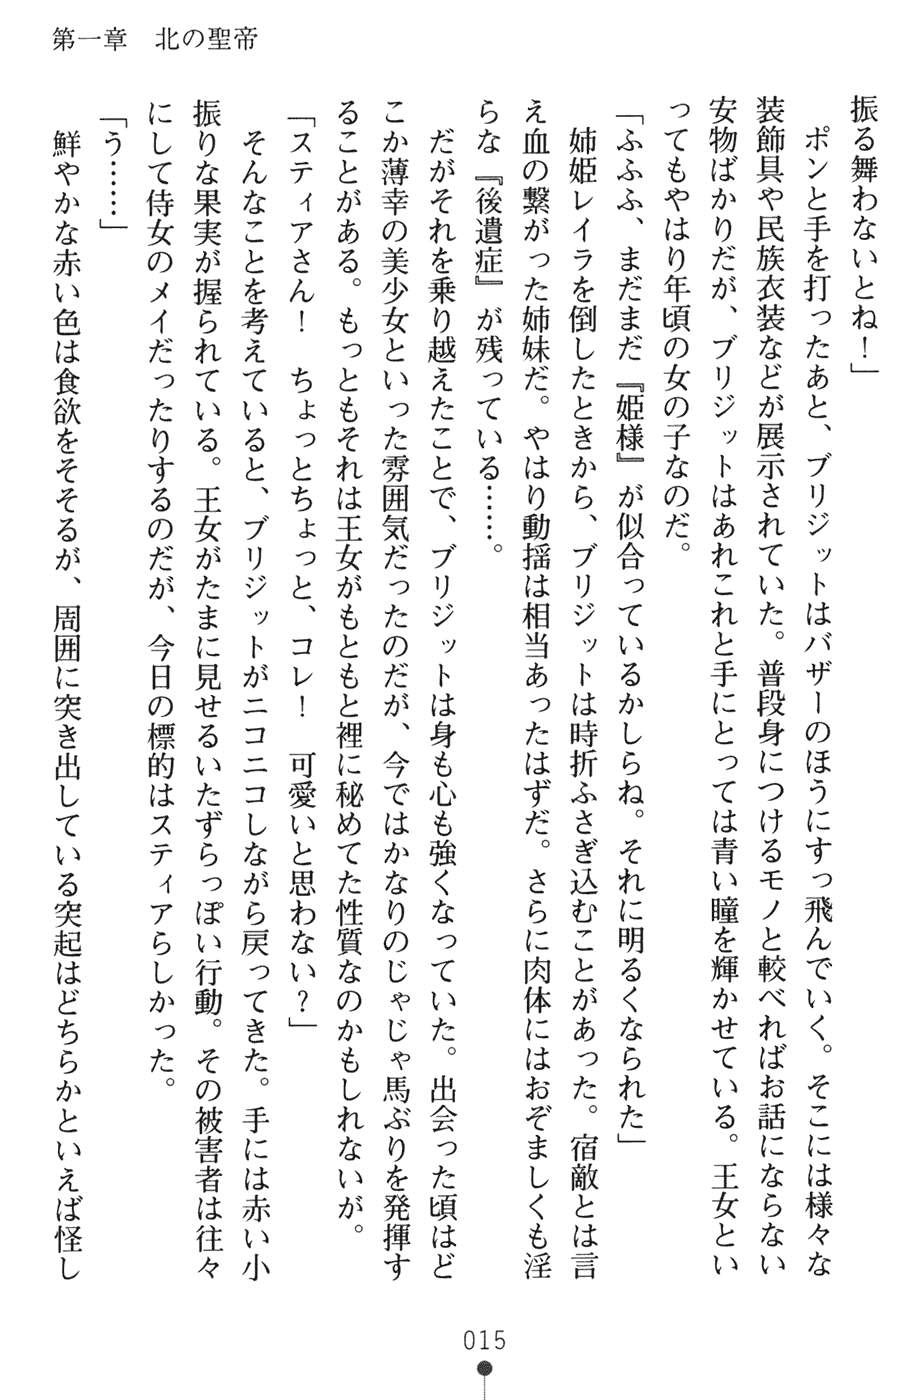 第一章　北の聖帝
振る舞わないとね！」
　ポンと手を打ったあと、ブリジットはバザーのほうにすっ飛んでいく。そこには様々な
装飾具や民族衣装などが展示されていた。普段身につけるモノと較べればお話にならない
安物ばかりだが、ブリジットはあれこれと手にとっては青い瞳を輝かせている。王女とい
ってもやはり年頃の女の子なのだ。
「ふふふ、まだまだ『姫様』が似合っているかしらね。それに明るくなられた」
　姉姫レイラを倒したときから、ブリジットは時折ふさぎ込むことがあった。宿敵とは言
え血の繋がった姉妹だ。やはり動揺は相当あったはずだ。さらに肉体にはおぞましくも淫
らな『後遺症』が残っている……。
　だがそれを乗り越えたことで、ブリジットは身も心も強くなっていた。出会った頃はど
こか薄幸の美少女といった雰囲気だったのだが、今ではかなりのじゃじゃ馬ぶりを発揮す
ることがある。もっともそれは王女がもともと裡に秘めてた性質なのかもしれないが。
「スティアさん！　ちょっとちょっと、コレ！　可愛いと思わない？」
　そんなことを考えていると、ブリジットがニコニコしながら戻ってきた。手には赤い小
振りな果実が握られている。王女がたまに見せるいたずらっぽい行動。その被害者は往々
にして侍女のメイだったりするのだが、今日の標的はスティアらしかった。
「う……」
　鮮やかな赤い色は食欲をそそるが、周囲に突き出している突起はどちらかといえば怪し
015